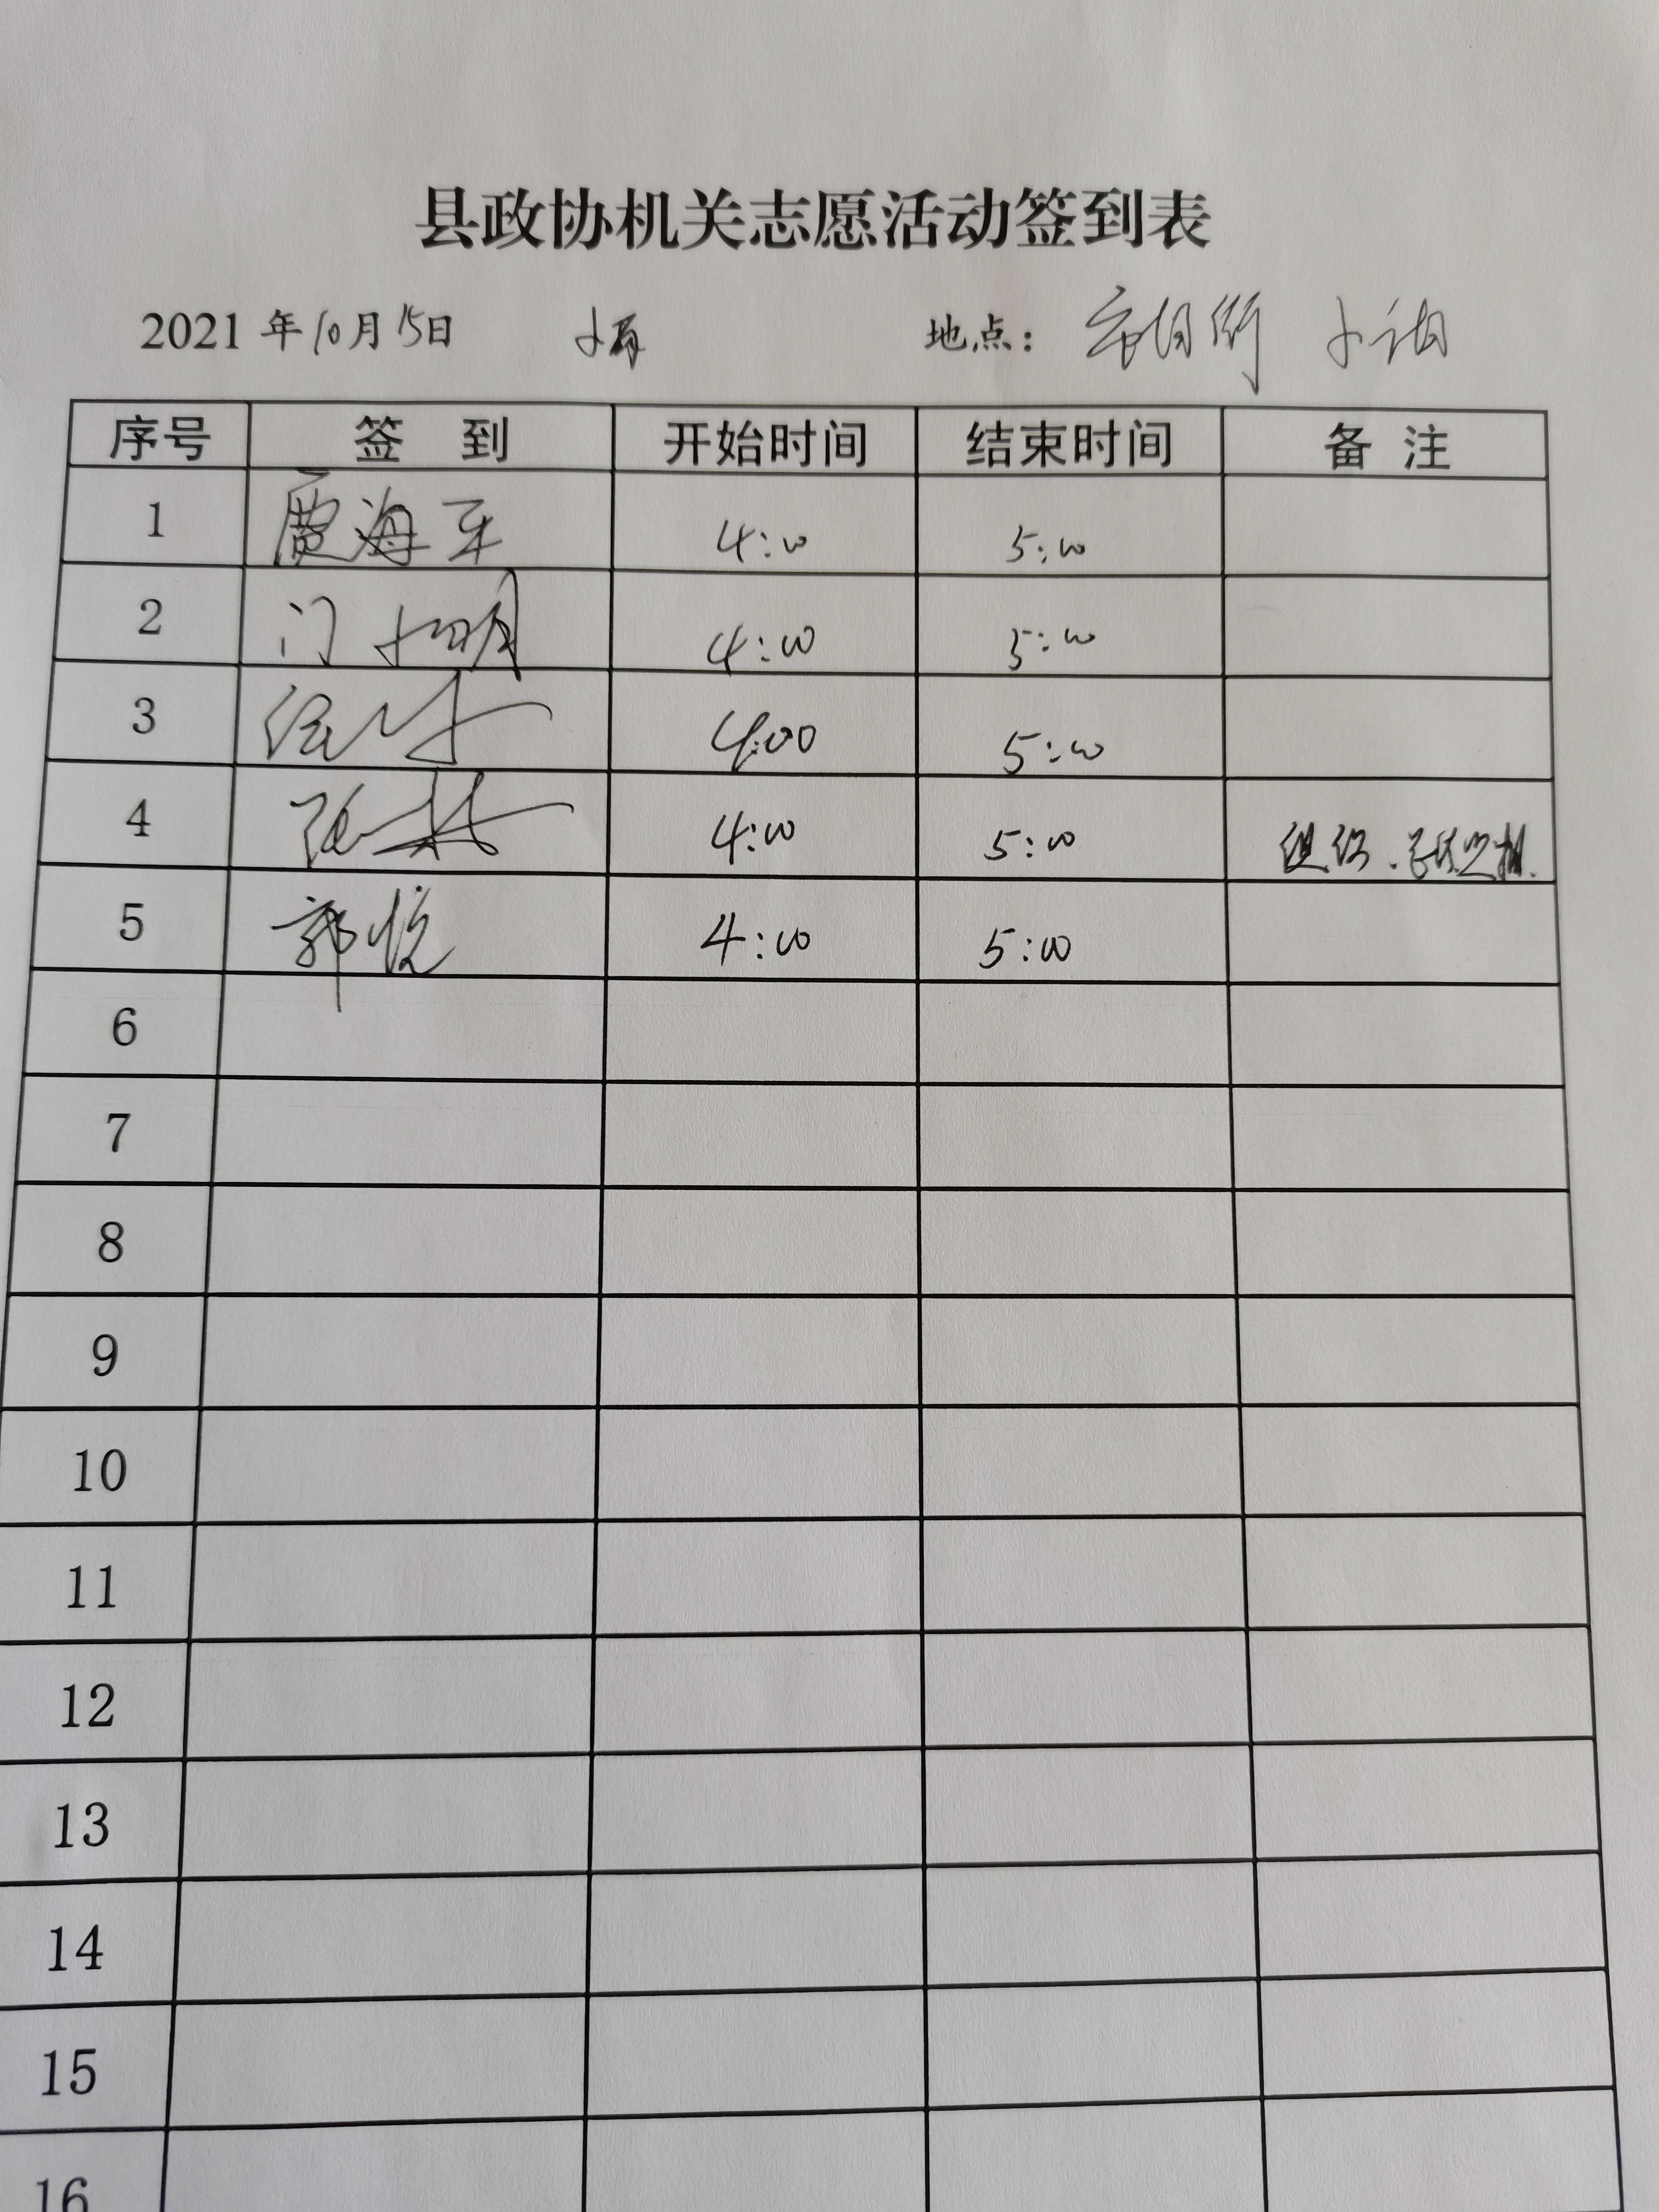 县政协机关志愿活动签到表
2021年10月15日 地点：
序号 签 到 开始时间 结束时间 备 注
1 贾海军 4:00 5:00
2 门 4:00 5:00
3 4:00 5:00
4 张 4:00 5:00
5 郭悦 4:00 5:00
6
7
8
9
10
11
12
13
14
15
16